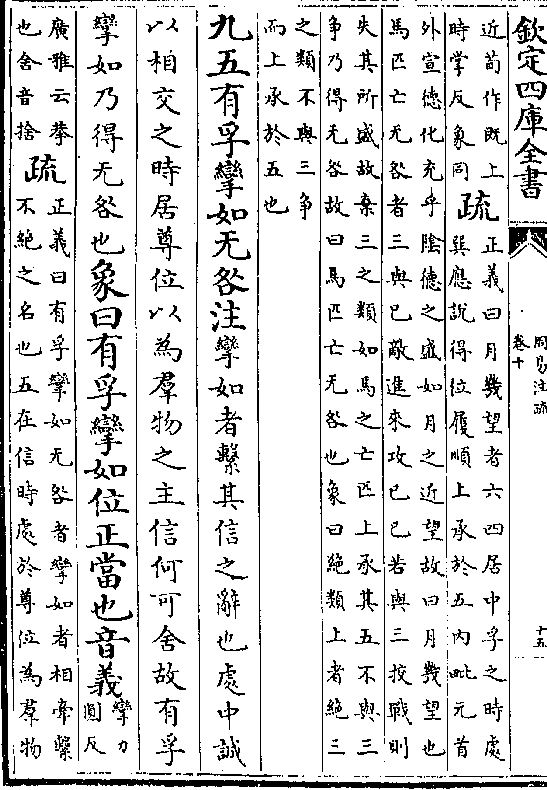 欽定四庫全書
周易注疏
卷十
十五
近荀作既上
時掌反象同
疏
正義曰月幾望者六四居中孚之時處
巽應說得位履順上承於五內毗元首
外宣德化充乎陰德之盛如月之近望故曰月幾望也
馬匹亡无咎者三與已敵進來攻已已若與三校戰則
失其所盛故棄三之類如馬之亡匹上承其五不與三
爭乃得无咎故曰馬匹亡无咎也象曰絶類上者絶三
之類不與三爭
而上承於五也
九五有孚攣如无咎注攣如者繫其信之辭也處中誠
以相交之時居尊位以為羣物之主信何可舍故有孚
攣如乃得无咎也象曰有孚攣如位正當也音義
攣力
圓反
廣雅云拳
也舍音捨
疏
正義曰有孚攣如无咎者攣如者相牽繫
不絶之名也五在信時處於尊位為羣物